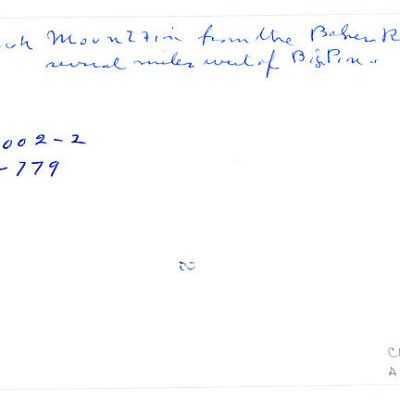 Mountain from the Baker R
several miles west of Big Pine.
002-2
-779
C
A